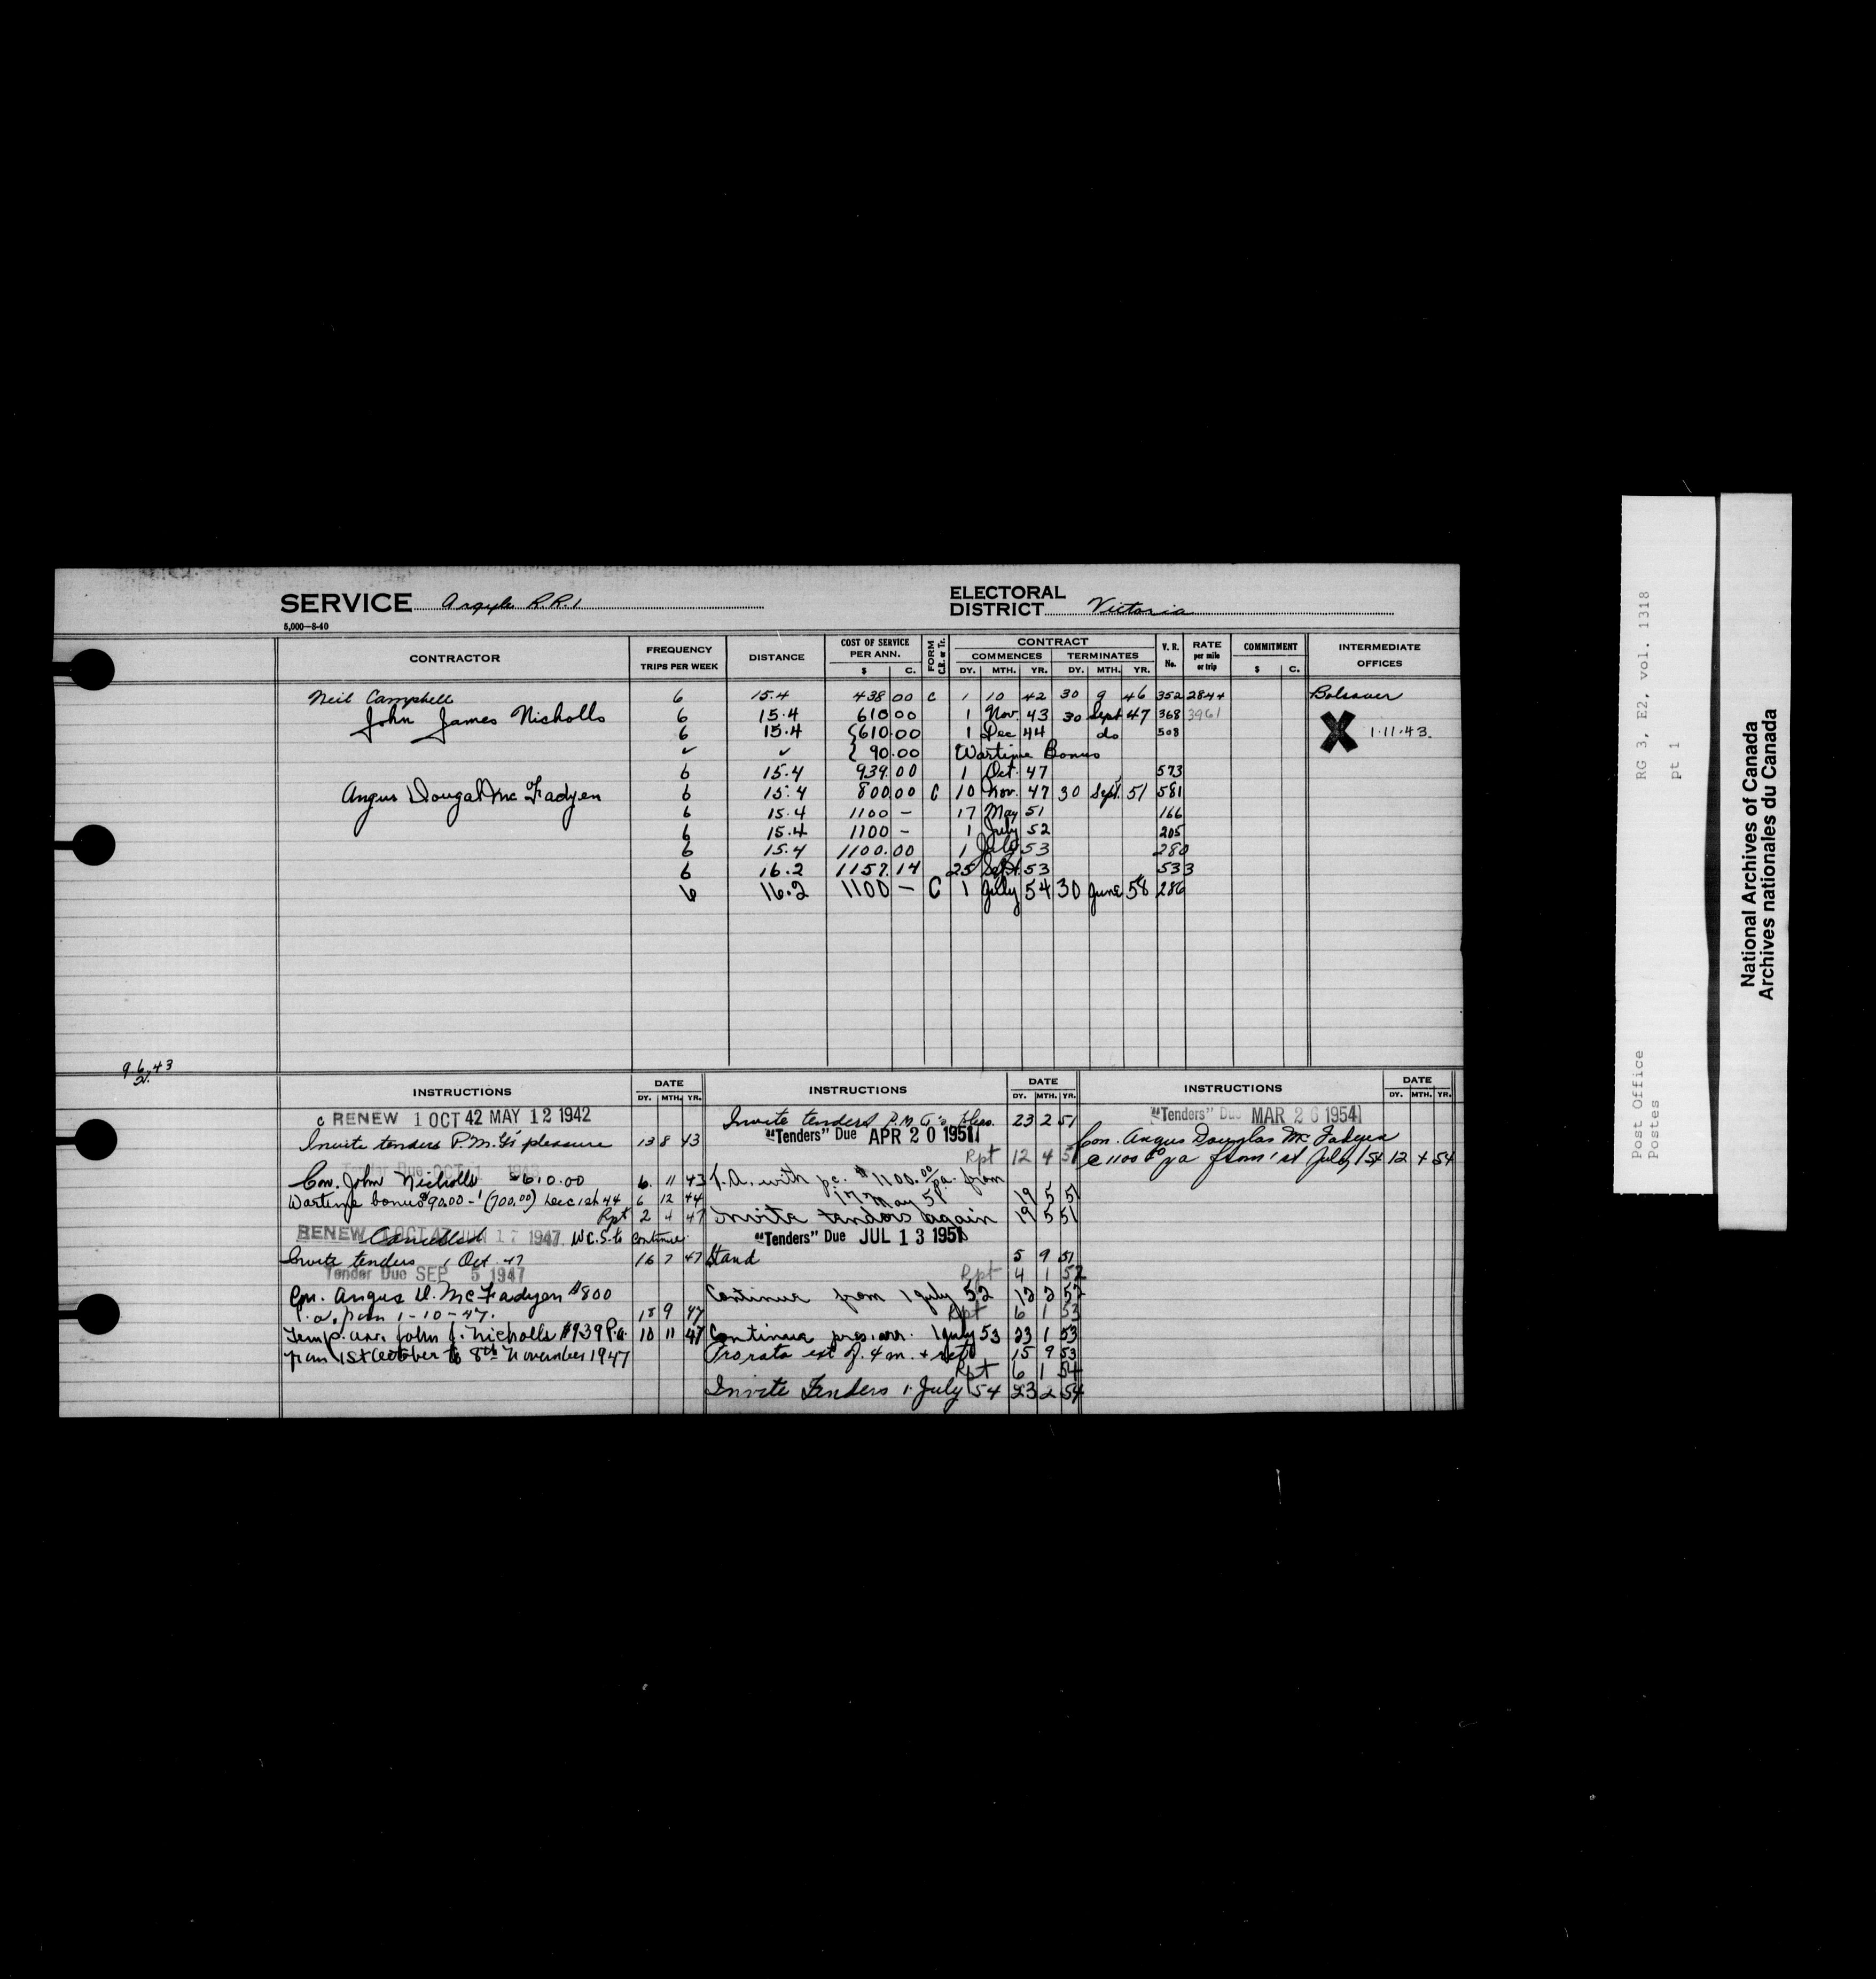 SERVICE Argyle R.R.1
ELECTORAL DISTRICT Victoria
5,000—8-40
CONTRACTOR
FREQUENCY TRIPS PER WEEK
DISTANCE
COST OF SERVICE PER ANN. $ C.
FORM C.R. or Tr.
CONTRACT
COMMENCES DY. MTH. YR.
TERMINATES DY. MTH. YR.
V. R. No.
RATE per mile or trip
COMMITMENT $ C.
INTERMEDIATE OFFICES
Neil Campbell 6 15.4 438 00 C 1 10 42 30 9 46 352 2844 Bolsover
John James Nicholls 6 15.4 610 00 1 Nov. 43 30 Sept 47 368 3961
6 15.4 {610.00 1 Dec 44 do 508 X 1.11.43.
✓ ✓ { 90.00 Wartime Bonus
6 15.4 939.00 1 Oct. 47 573
Angus Dougal Mc Fadyen 6 15.4 800.00 C 10 Nov. 47 30 Sept. 51 581
6 15.4 1100 — 17 May 51 166
6 15.4 1100 — 1 July 52 205
6 15.4 1100.00 1 July 53 280
6 16.2 1157.14 25 Sept. 53 533
6 16.2 1100 — C 1 July 54 30 June 58 286
9.6.43
INSTRUCTIONS DATE DY. MTH. YR.
C RENEW 1 OCT 42 MAY 12 1942
Invite tenders P.M.G's pleasure 13 8 43
Tender Due OCT 1 1943
Con. John Nicholls $610.00 6. 11 43
Wartime bonus $90.00 - (700.00) Dec 1st 44 6 12 44
Rpt 2 4 47
RENEW 1 OCT 47 JUN 17 1947. W.C.S. to continue.
Cancelled
Invite tenders 1 Oct. 47 16 7 47
Tender Due SEP 5 1947
Con. Angus D. McFadyen $800
P.a. from 1-10-47. 18 9 47
Temp. arr. John J. Nicholls $939 P.a. 10 11 47
from 1st October to 8th November 1947
INSTRUCTIONS DATE DY. MTH. YR.
Invite tenders P.M.G's pleas. 23 2 51
"Tenders" Due APR 20 1951
Rpt 12 4 51
T.A. with p.c. $1100.00 pa. from
17 May 51 19 5 51
Invite tenders again 19 5 51
"Tenders" Due JUL 13 1951
Stand 5 9 51
Rpt 4 1 52
Continue from 1 July 52 12 2 52
Rpt 6 1 53
Continue pres. arr. 1 July 53 23 1 53
Pro rata ext of .4 m. + ret 15 9 53
Rpt 6 1 54
Invite Tenders 1 July 54 23 2 54
INSTRUCTIONS DATE DY. MTH. YR.
"Tenders" Due MAR 26 1954
Con. Angus Douglas Mc Fadyen
@ 1100 00 pa from 1st July/54 12 4 54
Post Office RG 3, E2, vol. 1318
Postes pt 1
National Archives of Canada
Archives nationales du Canada